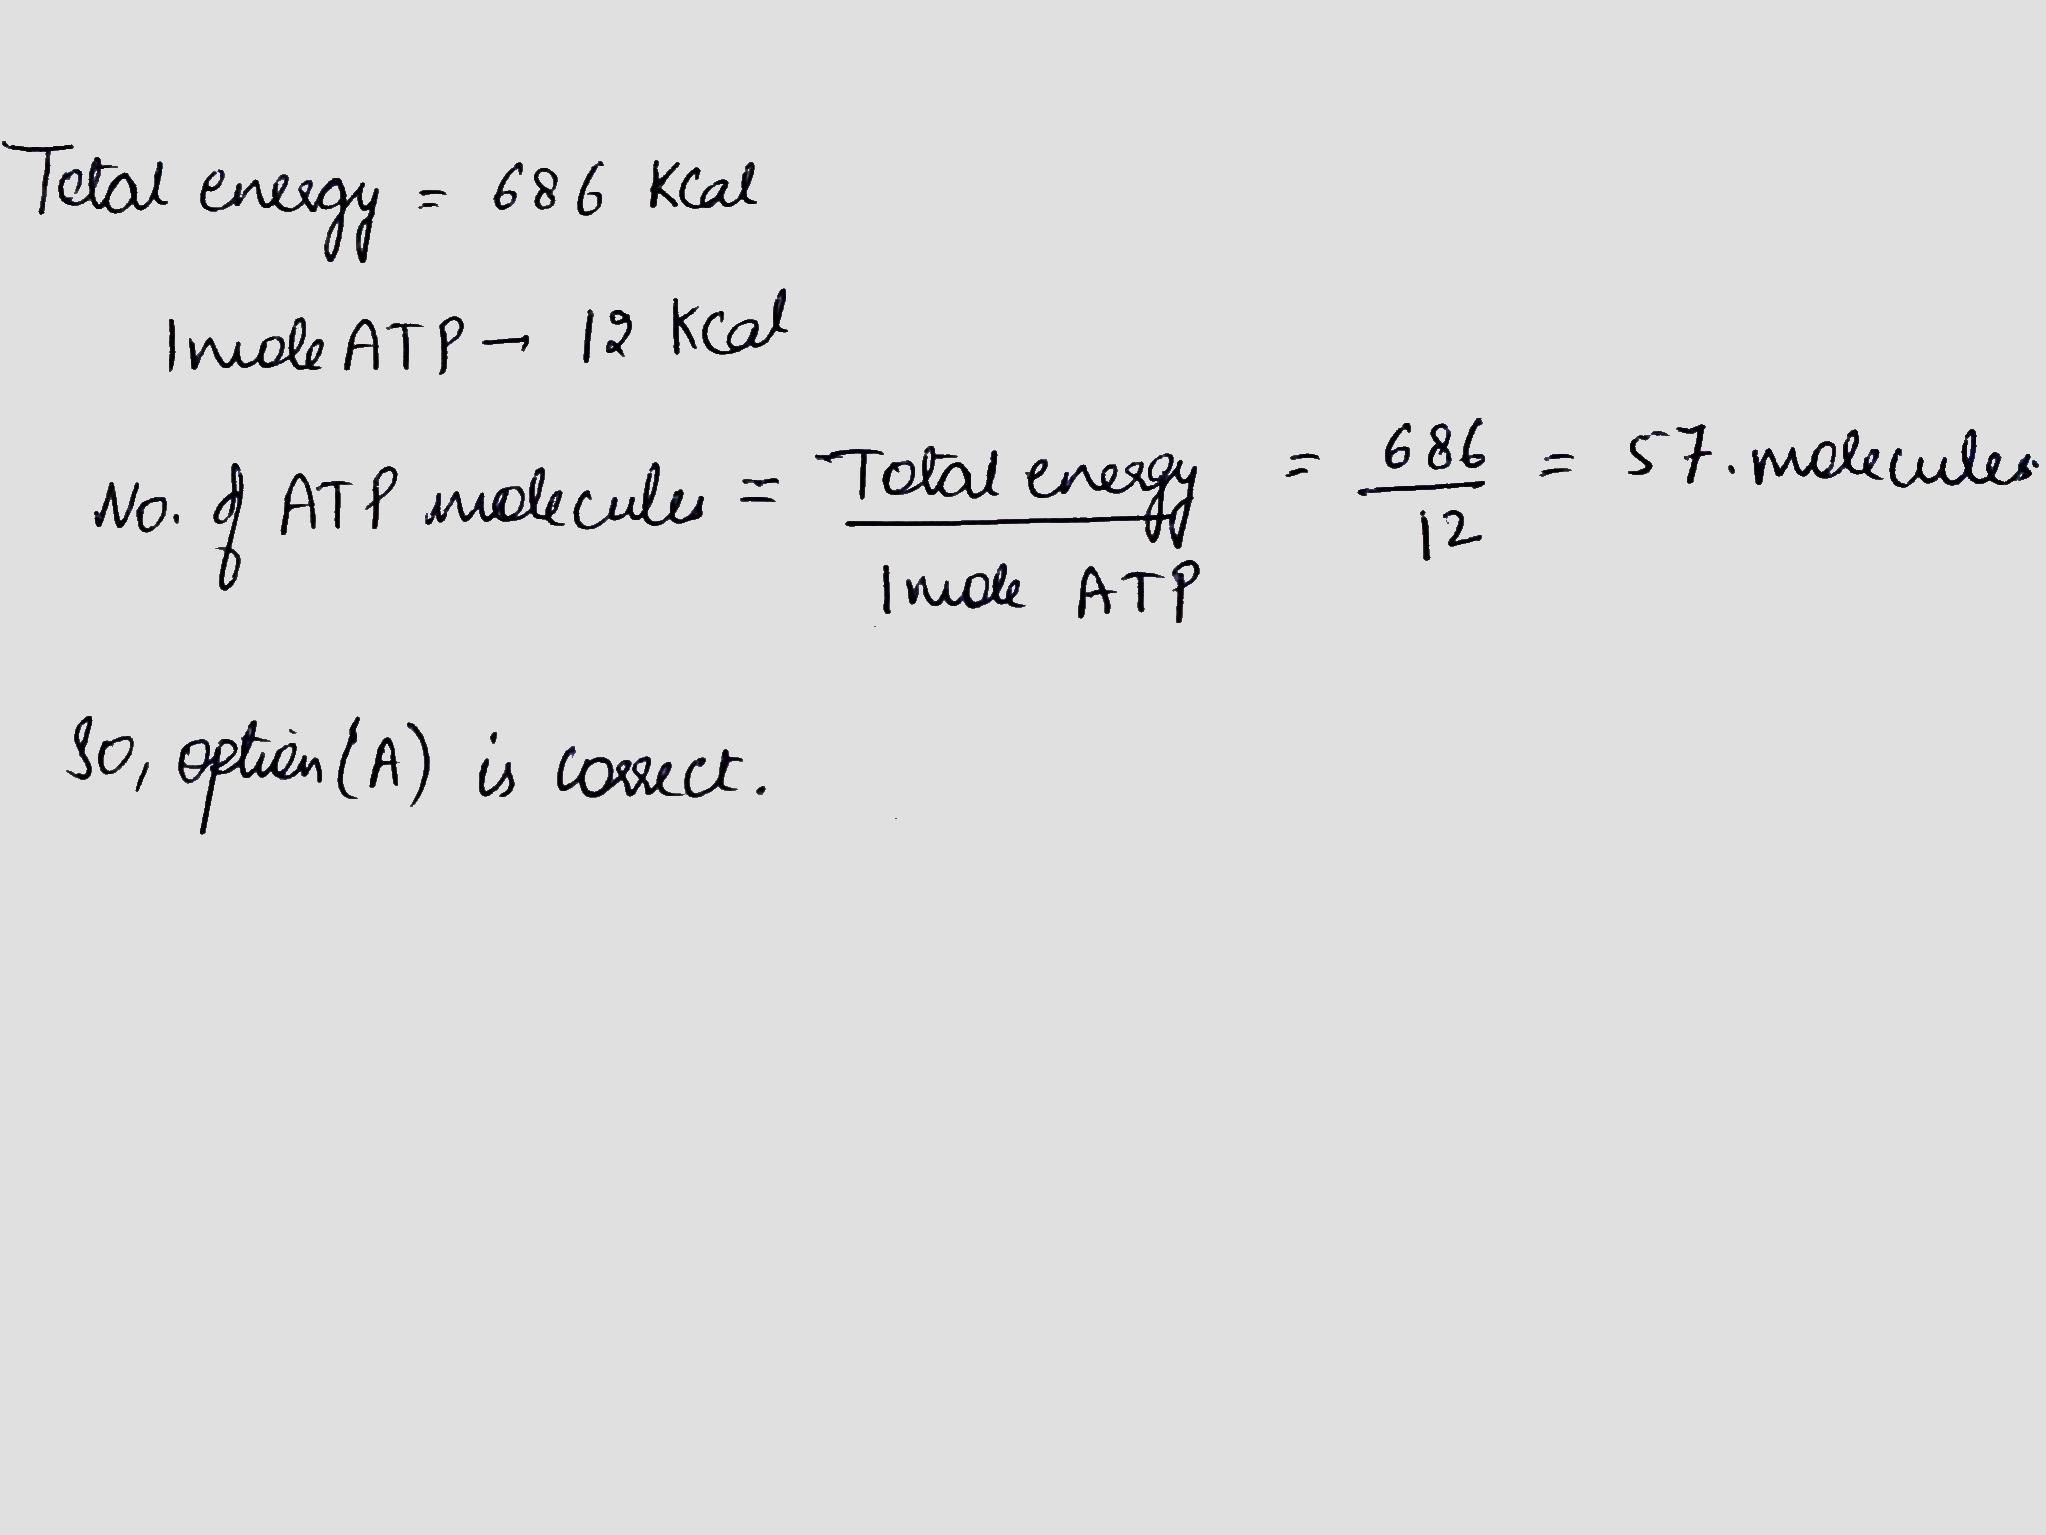 Total energy = 686 Kcal
1mole ATP → 12 Kcal
No. of ATP molecules = Total energy / 1 mole ATP = 686 / 12 = 57. molecules.
So, option (A) is correct.